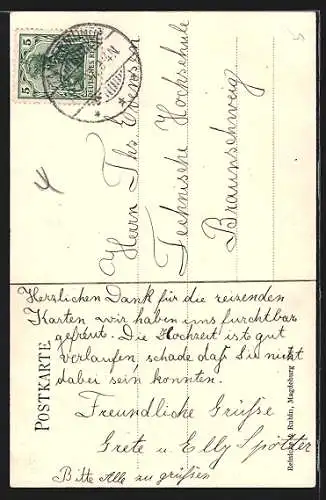 5 5
DEUTSCHES REICH
Herrn Ths. Evensen
Technische Hochschule
Braunschweig
POSTKARTE
Herzlichen Dank für die reizenden
Karten wir haben uns furchtbar
gefreut. Die Hochzeit ist gut
verlaufen, schade daß Sie nicht
dabei sein konnten.
Freundliche Grüße
Grete u. Elly Spötter
Bitte Alle zu grüßen
& Rubin, Magdeburg